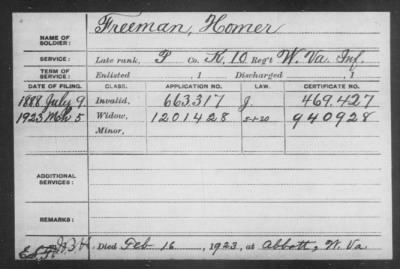 NAME OF SOLDIER: Freeman, Homer
SERVICE: Late rank, P Co. K, 10 Reg't W. Va. Inf.
TERM OF SERVICE: Enlisted , 1 Discharged , 1
DATE OF FILING. CLASS. APPLICATION NO. LAW. CERTIFICATE NO.
1888 July 9. Invalid, 663.317 J. 469.427
1923 Mch 5 Widow, 1201428 5-1-20 940928
Minor,
ADDITIONAL SERVICES:
REMARKS:
Died Feb 16 , 1923, at Abbott, W. Va.